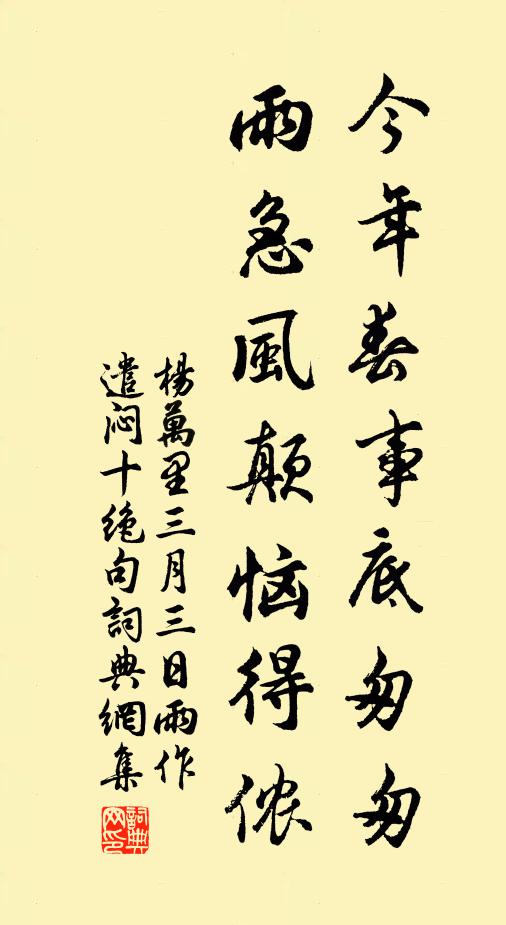 今年春事底匆匆
雨急風颠恼得侬
楊萬里三月三日雨作
遣闷十绝句詞典網集
詞典網印